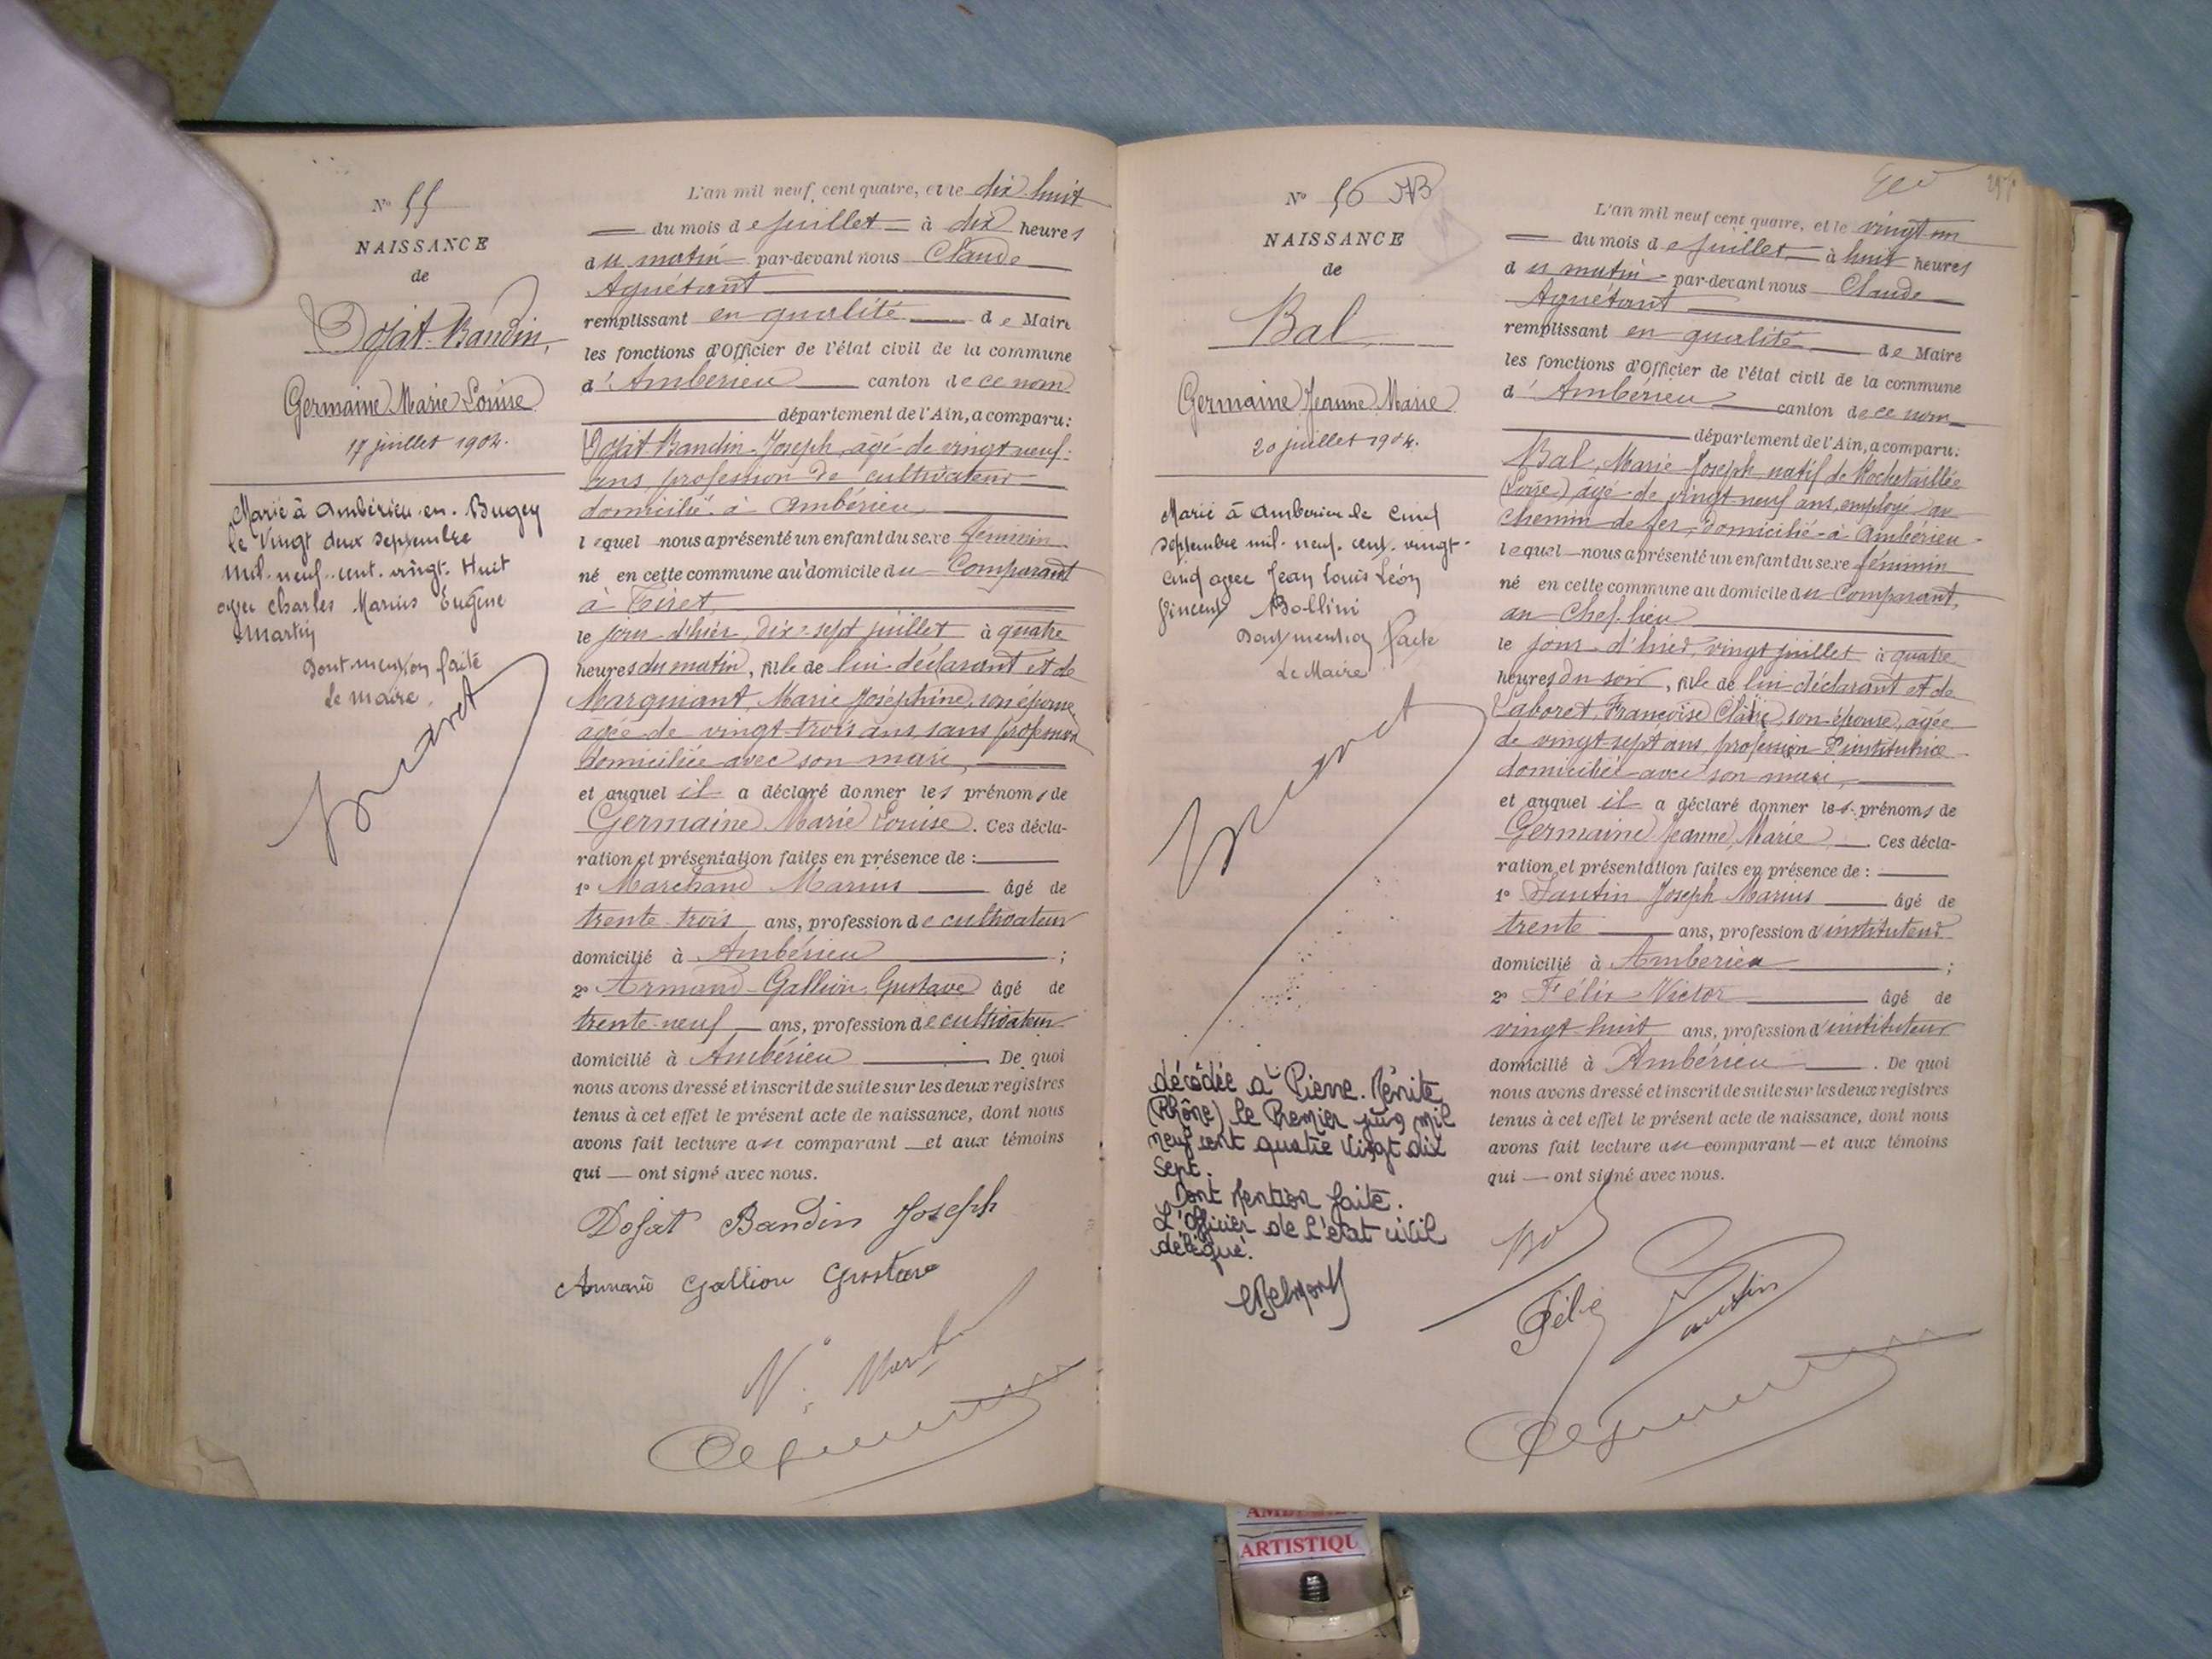 N° 55
NAISSANCE
de
Dojat-Baudin,
Germaine Marie Louise
17 juillet 1904.
Marié à Ambérieu-en-Bugey
le Vingt deux septembre
mil-neuf-cent-vingt-Huit
avec Charles Marius Eugène
Martin
Dont mention faite
Le maire
L'an mil neuf cent quatre, et le dix huit
du mois de Juillet à dix heures
du matin par-devant nous Claude
Aguétant
remplissant en qualité de Maire
les fonctions d'Officier de l'état civil de la commune
d'Ambérieu canton de ce nom
département de l'Ain, a comparu:
Dojat-Baudin Joseph, âgé de vingt neuf
ans, profession de cultivateur
domicilié à Ambérieu,
lequel nous a présenté un enfant du sexe féminin
né en cette commune au domicile du Comparant
à Tiret,
le jour d'hier, dix-sept juillet à quatre
heures du matin, fille de lui déclarant et de
Marguiant, Marie Joséphine, son épouse,
âgée de vingt-trois ans, sans profession
domiciliée avec son mari,
et auquel il a déclaré donner les prénoms de
Germaine Marie Louise. Ces décla-
ration et présentation faites en présence de :
1° Marchand Marius âgé de
trente-trois ans, profession de cultivateur
domicilié à Ambérieu ;
2° Armand-Gallion-Gustave âgé de
trente-neuf ans, profession de cultivateur
domicilié à Ambérieu. De quoi
nous avons dressé et inscrit de suite sur les deux registres
tenus à cet effet le présent acte de naissance, dont nous
avons fait lecture au comparant et aux témoins
qui ont signé avec nous.
Dojat Baudin Joseph
Armand Gallion Gustave
N° 56 AB
NAISSANCE
de
Bal
Germaine Jeanne Marie
20 juillet 1904.
Marié à Ambérieu le Cinq
septembre mil-neuf-cent-vingt-
cinq avec Jean Louis Léon
Vincent Bollini
Dont mention faite
Le Maire
décédée à Pierre-Bénite
(Rhône) le Premier juin mil
neuf cent quatre vingt dix
sept.
Dont Mention faite.
L'Officier de l'état civil
délégué.
L'an mil neuf cent quatre, et le vingt un
du mois de Juillet à huit heures
du matin par-devant nous Claude
Aguétant
remplissant en qualité de Maire
les fonctions d'Officier de l'état civil de la commune
d'Ambérieu canton de ce nom
département de l'Ain, a comparu:
Bal, Marie Joseph, natif de Rochetaillée
(Loire) âgé de vingt neuf ans, employé au
chemin de fer, domicilié à Ambérieu
lequel nous a présenté un enfant du sexe féminin
né en cette commune au domicile du Comparant,
au Chef-lieu
le jour d'hier, vingt juillet à quatre
heures du soir, fille de lui déclarant et de
Laboret, Françoise Claire, son épouse, âgée
de vingt sept ans, profession d'institutrice
domiciliée avec son mari,
et auquel il a déclaré donner les prénoms de
Germaine Jeanne Marie. Ces décla-
ration et présentation faites en présence de :
1° Santin Joseph Marius âgé de
trente ans, profession d'instituteur
domicilié à Ambérieu ;
2° Félix Victor âgé de
vingt huit ans, profession d'instituteur
domicilié à Ambérieu. De quoi
nous avons dressé et inscrit de suite sur les deux registres
tenus à cet effet le présent acte de naissance, dont nous
avons fait lecture au comparant et aux témoins
qui ont signé avec nous.
Bal
Félix
Santin
ARTISTIQU